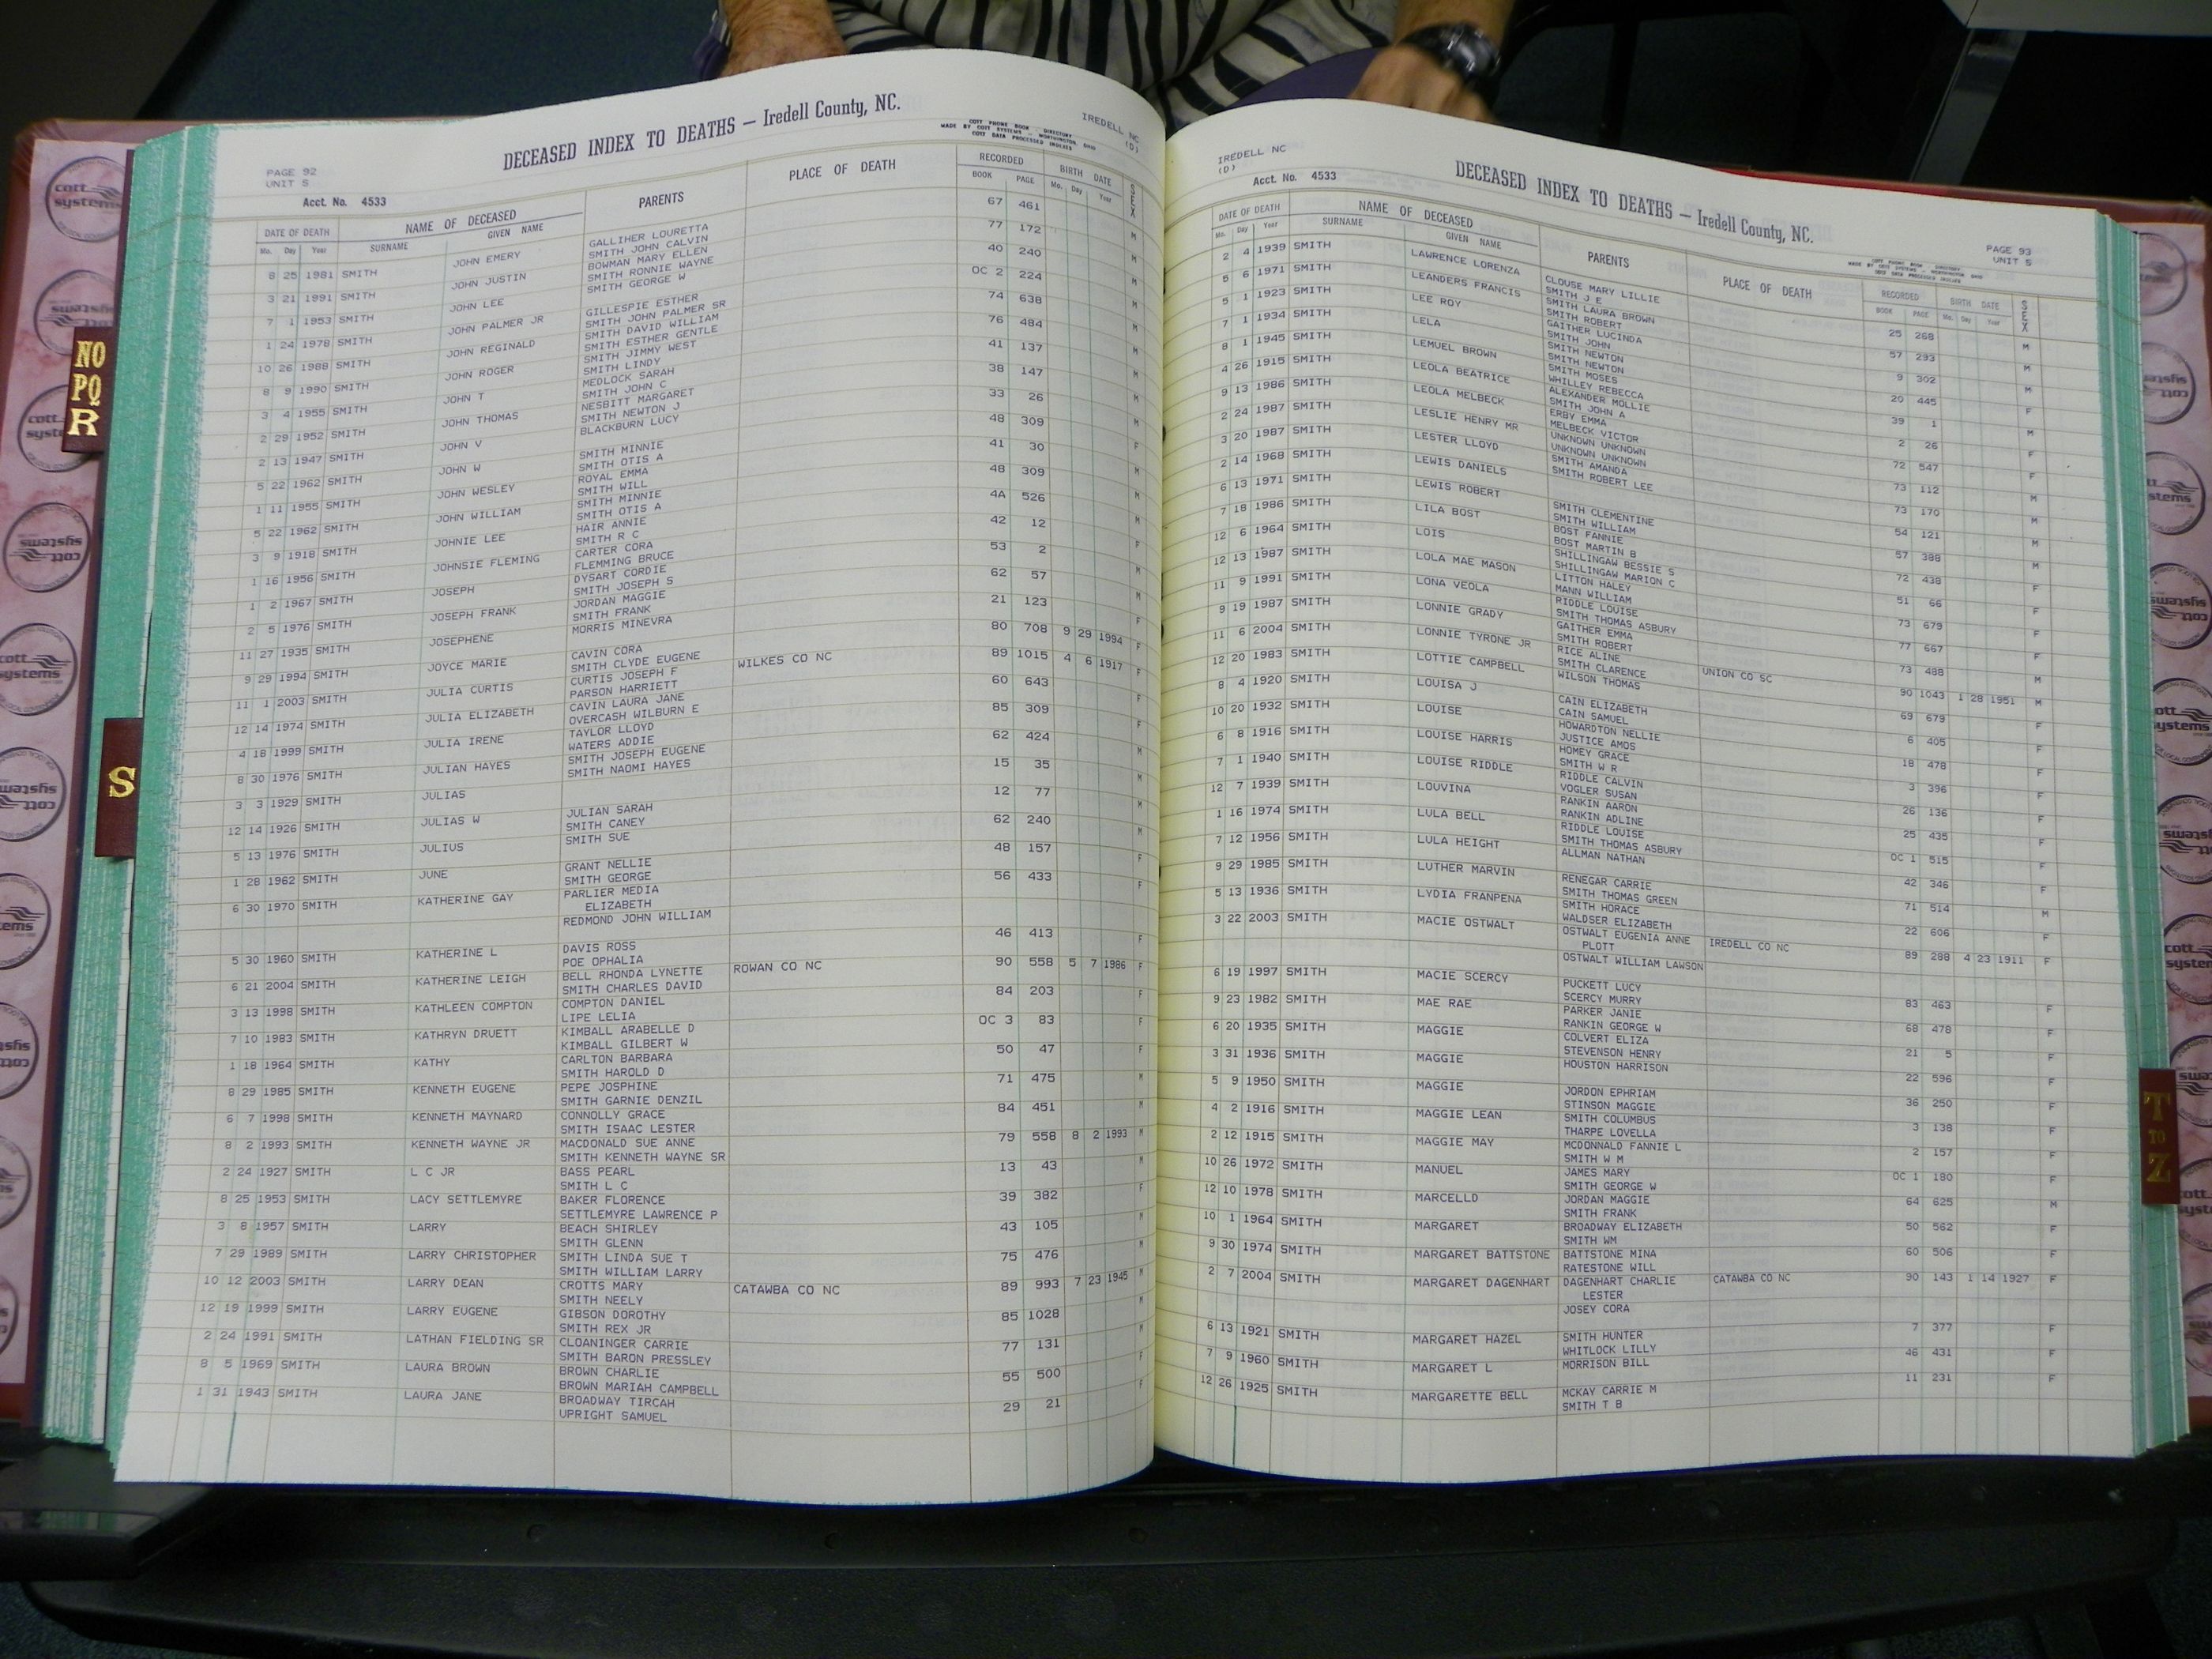 DECEASED INDEX TO DEATHS — Iredell County, NC.
IREDELL NC
(D)
COTT PHONE BOOK - DIRECTORY
MADE BY COTT SYSTEMS - WORTHINGTON, OHIO
COTT DATA PROCESSED INDEXES
PAGE 92
UNIT S
Acct. No. 4533
DATE OF DEATH NAME OF DECEASED PARENTS PLACE OF DEATH RECORDED BIRTH DATE SEX
Mo. Day Year SURNAME GIVEN NAME BOOK PAGE Mo. Day Year
8 25 1981 SMITH JOHN EMERY GALLIHER LOURETTA 67 461 M
SMITH JOHN CALVIN
3 21 1991 SMITH JOHN JUSTIN BOWMAN MARY ELLEN 77 172 M
SMITH RONNIE WAYNE
7 1 1953 SMITH JOHN LEE SMITH GEORGE W 40 240 M
1 24 1978 SMITH JOHN PALMER JR GILLESPIE ESTHER OC 2 224 M
SMITH JOHN PALMER SR
10 26 1988 SMITH JOHN REGINALD SMITH DAVID WILLIAM 74 638 M
SMITH ESTHER GENTLE
8 9 1990 SMITH JOHN ROGER SMITH JIMMY WEST 76 484 M
SMITH LINDY
3 4 1955 SMITH JOHN T MEDLOCK SARAH 41 137 M
SMITH JOHN C
2 29 1952 SMITH JOHN THOMAS NESBITT MARGARET 38 147 M
SMITH NEWTON J
2 13 1947 SMITH JOHN V BLACKBURN LUCY 33 26 M
5 22 1962 SMITH JOHN W SMITH MINNIE 48 309
SMITH OTIS A
1 11 1955 SMITH JOHN WESLEY ROYAL EMMA 41 30
SMITH WILL
5 22 1962 SMITH JOHN WILLIAM SMITH MINNIE 48 309
SMITH OTIS A
3 9 1918 SMITH JOHNIE LEE HAIR ANNIE 4A 526
SMITH R C
1 16 1956 SMITH JOHNSIE FLEMING CARTER CORA 42 12 F
FLEMMING BRUCE
1 2 1967 SMITH JOSEPH DYSART CORDIE 53 2 M
SMITH JOSEPH S
2 5 1976 SMITH JOSEPH FRANK JORDAN MAGGIE 62 57 M
SMITH FRANK
11 27 1935 SMITH JOSEPHENE MORRIS MINEVRA 21 123 F
9 29 1994 SMITH JOYCE MARIE CAVIN CORA 80 708 9 29 1994 F
SMITH CLYDE EUGENE
11 1 2003 SMITH JULIA CURTIS CURTIS JOSEPH F WILKES CO NC 89 1015 4 6 1917 F
PARSON HARRIETT
12 14 1974 SMITH JULIA ELIZABETH CAVIN LAURA JANE 60 643 F
OVERCASH WILBURN E
4 18 1999 SMITH JULIA IRENE TAYLOR LLOYD 85 309 F
WATERS ADDIE
8 30 1976 SMITH JULIAN HAYES SMITH JOSEPH EUGENE 62 424 M
SMITH NAOMI HAYES
3 3 1929 SMITH JULIAS 15 35 M
12 14 1926 SMITH JULIAS W JULIAN SARAH 12 77 M
SMITH CANEY
5 13 1976 SMITH JULIUS SMITH SUE 62 240 M
1 28 1962 SMITH JUNE GRANT NELLIE 48 157 F
SMITH GEORGE
6 30 1970 SMITH KATHERINE GAY PARLIER MEDIA 56 433 F
ELIZABETH
REDMOND JOHN WILLIAM
5 30 1960 SMITH KATHERINE L DAVIS ROSS 46 413 F
POE OPHALIA
6 21 2004 SMITH KATHERINE LEIGH BELL RHONDA LYNETTE ROWAN CO NC 90 558 5 7 1986 F
SMITH CHARLES DAVID
3 13 1998 SMITH KATHLEEN COMPTON COMPTON DANIEL 84 203 F
LIPE LELIA
7 10 1983 SMITH KATHRYN DRUETT KIMBALL ARABELLE D OC 3 83 F
KIMBALL GILBERT W
1 18 1964 SMITH KATHY CARLTON BARBARA 50 47 F
SMITH HAROLD D
8 29 1985 SMITH KENNETH EUGENE PEPE JOSPHINE 71 475 M
SMITH GARNIE DENZIL
6 7 1998 SMITH KENNETH MAYNARD CONNOLLY GRACE 84 451 M
SMITH ISAAC LESTER
8 2 1993 SMITH KENNETH WAYNE JR MACDONALD SUE ANNE 79 558 8 2 1993 M
SMITH KENNETH WAYNE SR
2 24 1927 SMITH L C JR BASS PEARL 13 43 M
SMITH L C
8 25 1953 SMITH LACY SETTLEMYRE BAKER FLORENCE 39 382 F
SETTLEMYRE LAWRENCE P
3 8 1957 SMITH LARRY BEACH SHIRLEY 43 105 M
SMITH GLENN
7 29 1989 SMITH LARRY CHRISTOPHER SMITH LINDA SUE T 75 476 M
SMITH WILLIAM LARRY
10 12 2003 SMITH LARRY DEAN CROTTS MARY CATAWBA CO NC 89 993 7 23 1945 M
SMITH NEELY
12 19 1999 SMITH LARRY EUGENE GIBSON DOROTHY 85 1028 M
SMITH REX JR
2 24 1991 SMITH LATHAN FIELDING SR CLOANINGER CARRIE 77 131 M
SMITH BARON PRESSLEY
8 5 1969 SMITH LAURA BROWN BROWN CHARLIE 55 500 F
BROWN MARIAH CAMPBELL
1 31 1943 SMITH LAURA JANE BROADWAY TIRCAH 29 21 F
UPRIGHT SAMUEL
IREDELL NC
(D)
Acct. No. 4533
DECEASED INDEX TO DEATHS — Iredell County, NC.
PAGE 93
UNIT S
DATE OF DEATH NAME OF DECEASED PARENTS PLACE OF DEATH RECORDED BIRTH DATE SEX
Mo. Day Year SURNAME GIVEN NAME BOOK PAGE Mo. Day Year
2 4 1939 SMITH LAWRENCE LORENZA CLOUSE MARY LILLIE 25 268 M
SMITH J E
5 6 1971 SMITH LEANDERS FRANCIS SMITH LAURA BROWN 57 293 M
SMITH ROBERT
5 1 1923 SMITH LEE ROY GAITHER LUCINDA 9 302 M
SMITH JOHN
7 1 1934 SMITH LELA SMITH NEWTON 20 445 F
SMITH NEWTON
8 1 1945 SMITH LEMUEL BROWN SMITH MOSES 39 1 M
WHILLEY REBECCA
4 26 1915 SMITH LEOLA BEATRICE ALEXANDER MOLLIE 2 26 F
SMITH JOHN A
9 13 1986 SMITH LEOLA MELBECK ERBY EMMA 72 547 F
MELBECK VICTOR
2 24 1987 SMITH LESLIE HENRY MR UNKNOWN UNKNOWN 73 112 M
UNKNOWN UNKNOWN
3 20 1987 SMITH LESTER LLOYD SMITH AMANDA 73 170
SMITH ROBERT LEE
2 14 1968 SMITH LEWIS DANIELS 54 121 M
6 13 1971 SMITH LEWIS ROBERT SMITH CLEMENTINE 57 388 M
SMITH WILLIAM
7 18 1986 SMITH LILA BOST BOST FANNIE 72 438 F
BOST MARTIN B
12 6 1964 SMITH LOIS SHILLINGAW BESSIE S 51 66
SHILLINGAW MARION C
12 13 1987 SMITH LOLA MAE MASON LITTON HALEY 73 679 F
MANN WILLIAM
11 9 1991 SMITH LONA VEOLA RIDDLE LOUISE 77 667 F
SMITH THOMAS ASBURY
9 19 1987 SMITH LONNIE GRADY GAITHER EMMA 73 488 M
SMITH ROBERT
11 6 2004 SMITH LONNIE TYRONE JR RICE ALINE UNION CO SC 90 1043 1 28 1951 M
SMITH CLARENCE
12 20 1983 SMITH LOTTIE CAMPBELL WILSON THOMAS 69 679 F
8 4 1920 SMITH LOUISA J CAIN ELIZABETH 6 405
CAIN SAMUEL
10 20 1932 SMITH LOUISE HOWARDTON NELLIE 18 478 F
JUSTICE AMOS
6 8 1916 SMITH LOUISE HARRIS HOMEY GRACE 3 396 F
SMITH W R
7 1 1940 SMITH LOUISE RIDDLE RIDDLE CALVIN 26 136 F
VOGLER SUSAN
12 7 1939 SMITH LOUVINA RANKIN AARON 25 435 F
RANKIN ADLINE
1 16 1974 SMITH LULA BELL RIDDLE LOUISE OC 1 515 F
SMITH THOMAS ASBURY
7 12 1956 SMITH LULA HEIGHT ALLMAN NATHAN 42 346 F
9 29 1985 SMITH LUTHER MARVIN RENEGAR CARRIE 71 514 M
SMITH THOMAS GREEN
5 13 1936 SMITH LYDIA FRANPENA SMITH HORACE 22 606 F
WALDSER ELIZABETH
3 22 2003 SMITH MACIE OSTWALT OSTWALT EUGENIA ANNE IREDELL CO NC 89 288 4 23 1911 F
PLOTT
OSTWALT WILLIAM LAWSON
6 19 1997 SMITH MACIE SCERCY PUCKETT LUCY 83 463 F
SCERCY MURRY
9 23 1982 SMITH MAE RAE PARKER JANIE 68 478 F
RANKIN GEORGE W
6 20 1935 SMITH MAGGIE COLVERT ELIZA 21 5 F
STEVENSON HENRY
3 31 1936 SMITH MAGGIE HOUSTON HARRISON 22 596 F
5 9 1950 SMITH MAGGIE JORDON EPHRIAM 36 250 F
STINSON MAGGIE
4 2 1916 SMITH MAGGIE LEAN SMITH COLUMBUS 3 138 F
THARPE LOVELLA
2 12 1915 SMITH MAGGIE MAY MCDONNALD FANNIE L 2 157 F
SMITH W M
10 26 1972 SMITH MANUEL JAMES MARY OC 1 180 F
SMITH GEORGE W
12 10 1978 SMITH MARCELLD JORDAN MAGGIE 64 625 M
SMITH FRANK
10 1 1964 SMITH MARGARET BROADWAY ELIZABETH 50 562 F
SMITH WM
9 30 1974 SMITH MARGARET BATTSTONE BATTSTONE MINA 60 506 F
RATESTONE WILL
2 7 2004 SMITH MARGARET DAGENHART DAGENHART CHARLIE CATAWBA CO NC 90 143 1 14 1927 F
LESTER
JOSEY CORA
6 13 1921 SMITH MARGARET HAZEL SMITH HUNTER 7 377 F
WHITLOCK LILLY
7 9 1960 SMITH MARGARET L MORRISON BILL 46 431 F
12 26 1925 SMITH MARGARETTE BELL MCKAY CARRIE M 11 231 F
SMITH T B
NO
PQ
R
S
T
TO
Z
cott
systems